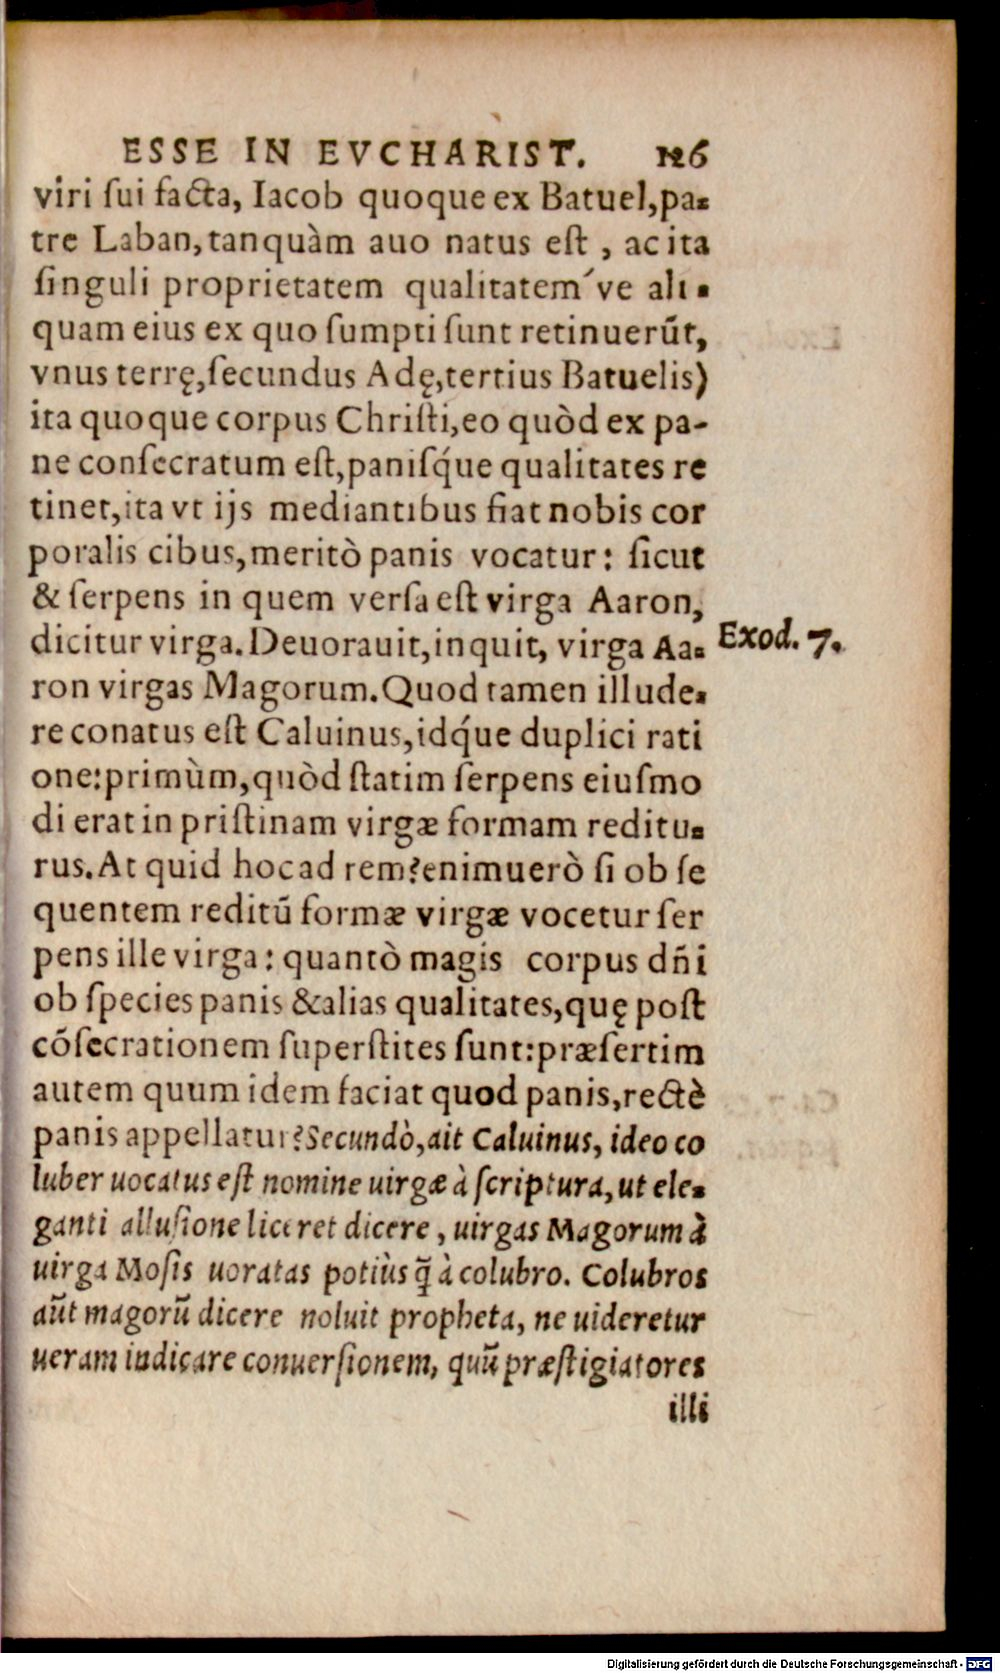 ESSE IN EVCHARIST. 126
viri ſui facta, Iacob quoque ex Batuel,pa-
tre Laban,tanquàm auo natus eſt , ac ita
ſinguli proprietatem qualitatem´ve ali-
quam eius ex quo ſumpti ſunt retinuerūt,
vnus terrę,ſecundus Adę,tertius Batuelis)
ita quoque corpus Chriſti,eo quòd ex pa-
ne conſecratum eſt,paniſq́ue qualitates re
tinet,ita vt ijs mediantibus fiat nobis cor
poralis cibus,meritò panis vocatur: ſicut
& ſerpens in quem verſa eſt virga Aaron,
dicitur virga.Deuorauit,inquit, virga Aa-
Exod. 7.
ron virgas Magorum.Quod tamen illude-
re conatus eſt Caluinus,idq́ue duplici rati
one:primùm,quòd ſtatim ſerpens eiuſmo
di erat in priſtinam virgæ formam reditu-
rus.At quid hoc ad rem?enimuerò ſi ob ſe
quentem reditū formæ virgæ vocetur ſer
pens ille virga: quantò magis corpus dñi
ob ſpecies panis &alias qualitates,quę poſt
cōſecrationem ſuperſtites ſunt:præſertim
autem quum idem faciat quod panis,rectè
panis appellatur?Secundò,ait Caluinus, ideo co
luber uocatus eſt nomine uirgæ à ſcriptura,ut ele-
ganti alluſione liceret dicere , uirgas Magorum à
uirga Moſis uoratas potiùs q̃ à colubro. Colubros
aūt magorū dicere noluit propheta, ne uideretur
ueram indicare conuerſionem, quū præſtigiatores
illi
Digitalisierung gefördert durch die Deutsche Forschungsgemeinschaft - DFG